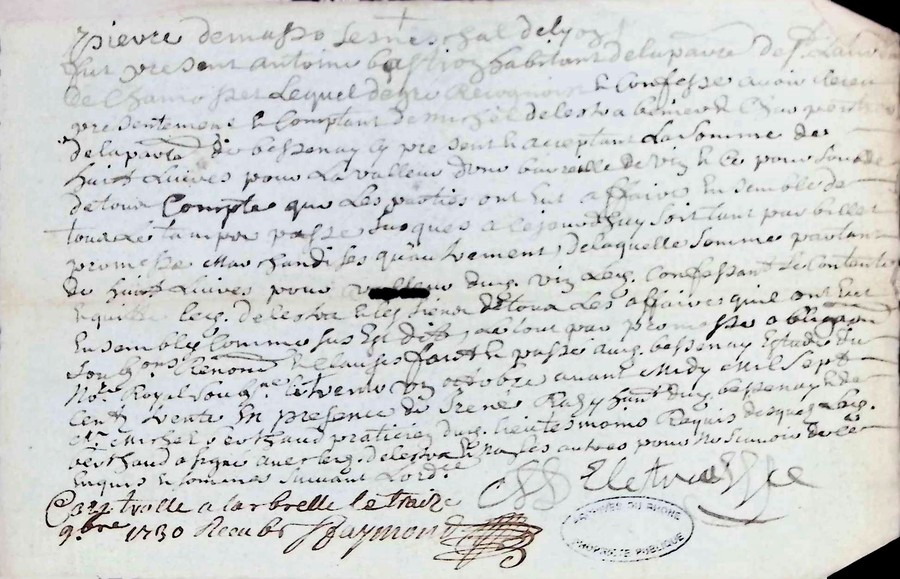 pierre de masso seneschal de lyon
fut present antoine bastion habitant de la paroisse de St Lau
de Chamosset Lequel de gré Recognoist & Confesse avoir receu
presentement & Comptant de michel delestra
de la parro de bessenay cy present & acceptant La somme de
huict Livres pour La valleur d'une barreille de vin & ce pour
de tous Compte que Les parties ont Eut a ffaires Ensemble de
tous Le tamps passe jusques a Cejourdhuy soit tant par billet
promesse Marchandises qu'autrement de laquelle somme partant
de huict Livres pour vin Led. Confessant se Contente
& quitte Led. delestra & les siens de tous Les affaires quil ont Eut
Ensembles Comme sus Est dit par promesse obligaon
Soubmons Renonons & Clauses faict & passé aud. bessenay Estude du
Nore Royal Soubne Le octobre avant Midy Mil Sept
Centz trente En presence de Irené Razy hant dud. bessenay & de
Mr Michel berthaud praticien dud. lieu tesmoins Requis desquelz led.
berthaud a signé avec led. delestra & non les autres pour ne scavoir de ce
Enquis & sommes suivant Lordce
Delestra
Controllé a larbrelle le traize
9bre 1730 Receu Raymond
ARCHIVES DU RHONE
PROPRIETE PUBLIQUE